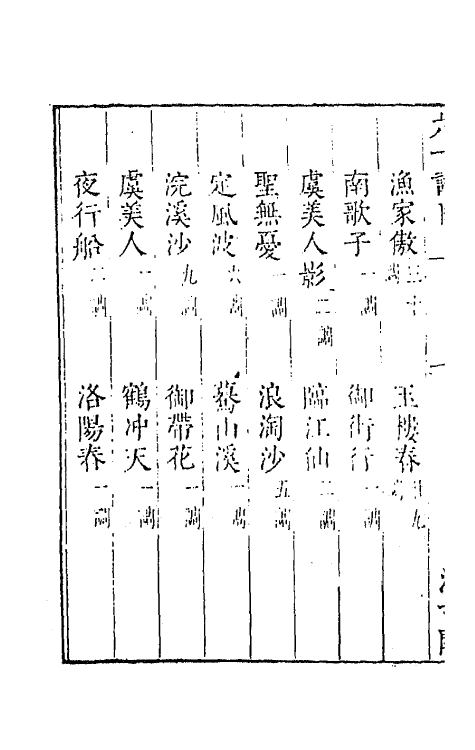 漁家傲三十調　玉樓春廿九調
南歌子一調　御街行一調
虞美人影二調　臨江仙二調
聖無憂一調　浪淘沙五調
定風波六調　驀山溪一調
浣溪沙九調　御帶花一調
虞美人一調　鶴冲天一調
夜行船二調　洛陽春一調